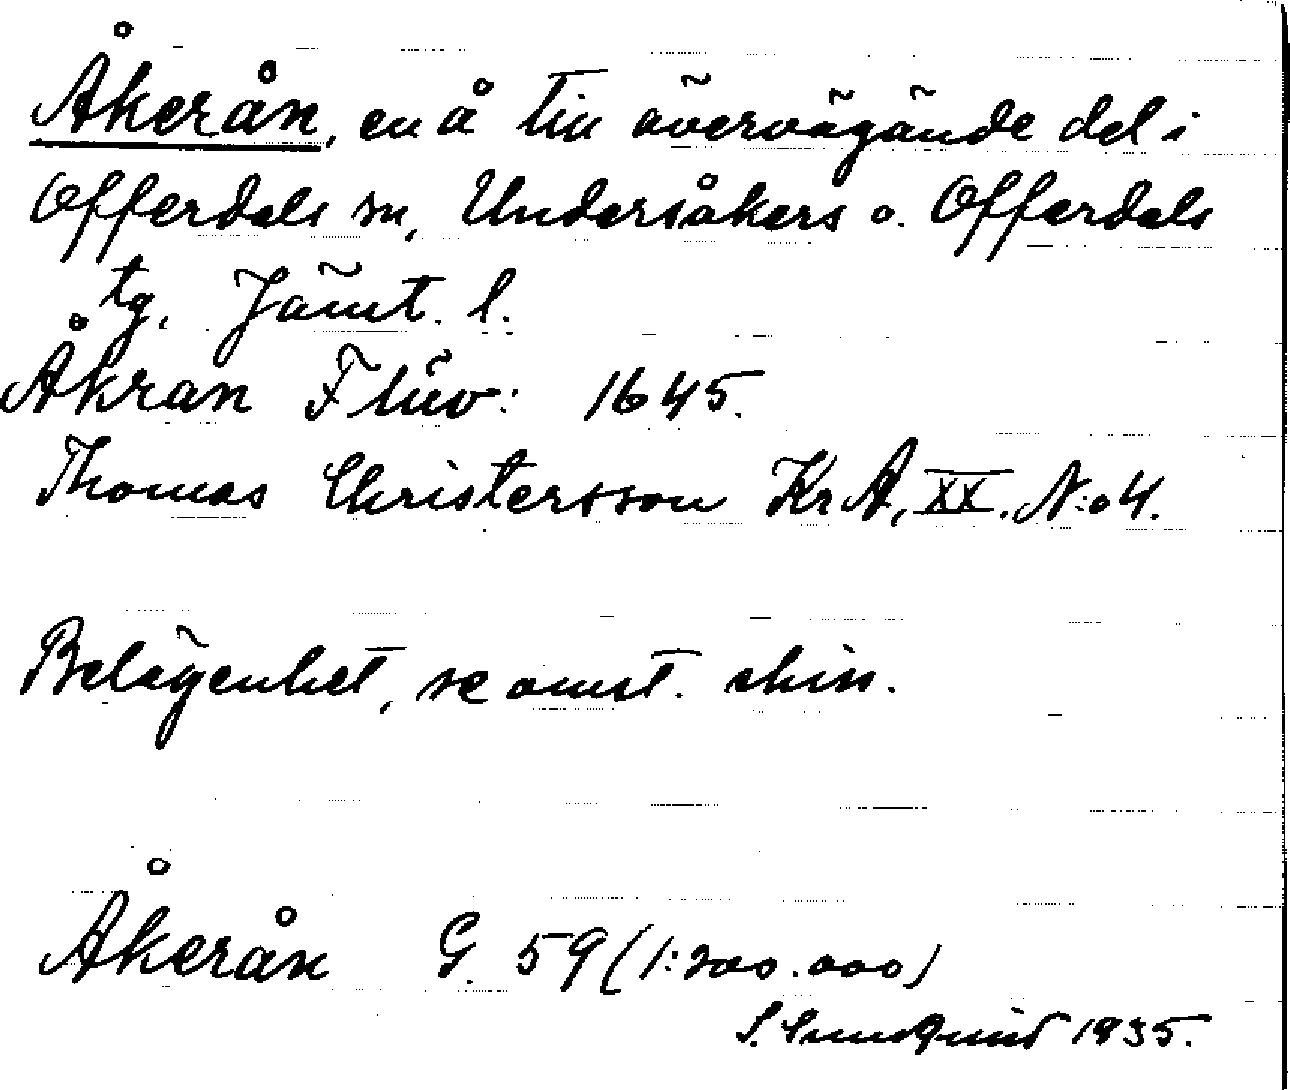 Åkerån, en å till övervägande del i
Offerdals sn, Undersåkers o. Offerdals
tg. Jämt. l.
Åkran Flŭv: 1645.
Thomas Christersson KrA, XX. N:o 4.
Belägenhet, se omst. skiss.
Åkerån G. 59 (1:200.000)
S. Lundquist 1935.